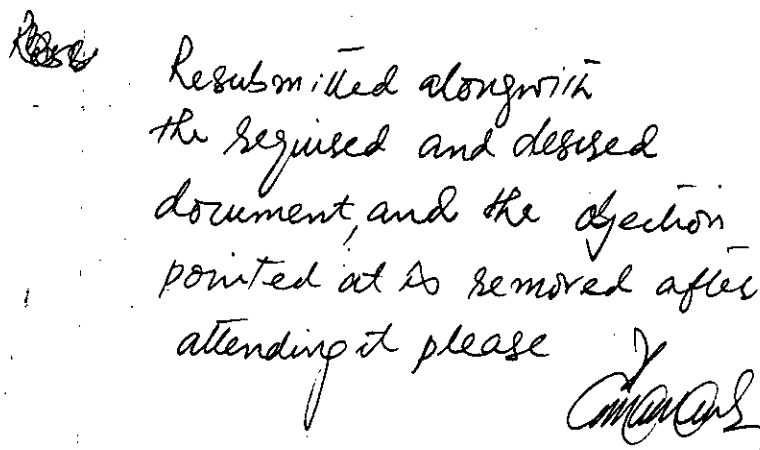 Resubmitted alongwith
the required and desired
document, and the objection
pointed at is removed after
attending it please